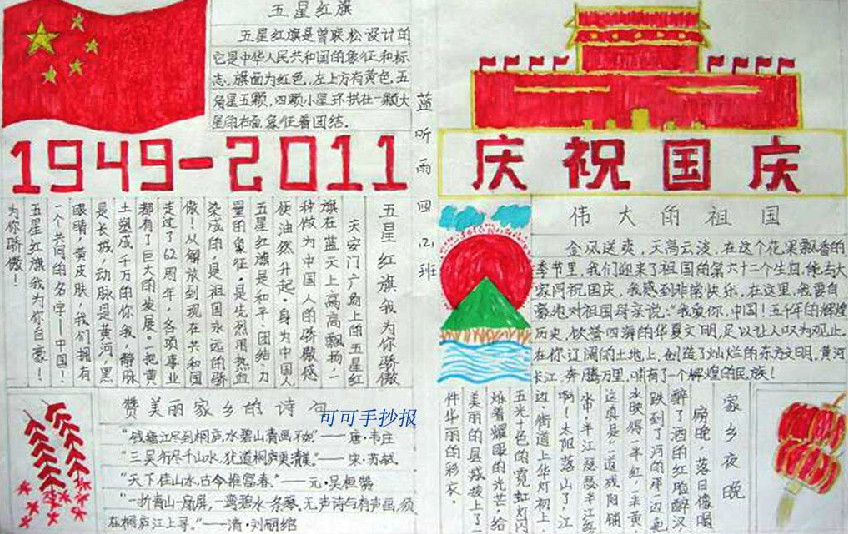 五星红旗
五星红旗是曾联松设计的
它是中华人民共和国的象征和标
志。旗面为红色,左上方有黄色五
角星五颗,四颗小星环拱在一颗大
星的右面,象征着团结。
1949-2011
蓝听雨 四(2)班
庆祝国庆
伟大的祖国
金风送爽,天高云淡,在这个花果飘香的
季节里,我们迎来了祖国的第六十二个生日,
家同祝国庆,我感到非常快乐,在这里,我要自
豪地对祖国母亲说:"我爱你,中国!五千年的辉煌
历史,饮誉四海的华夏文明,足以让人叹为观止。
在你辽阔的土地上,创造了灿烂的东方文明,黄河
长江,奔腾万里,哺育了一个辉煌的民族!
五星红旗我为你骄傲
天安门广场上的五星红
旗在蓝天上高高飘扬,一
种做为中国人的骄傲感
便油然升起。身为中国人
五星红旗是和平、团结、力
量的象征,是先烈用热血
染成的,是祖国永远的骄
傲!从解放到现在共和国
走过了62周年,各项事业
都有了巨大的发展。一把黄
土塑成千万的你我,静脉
是长城,动脉是黄河,黑
眼睛,黄皮肤,我们拥有
一个共同的名字——中国!
五星红旗我为你自豪!
为你骄傲!
赞美丽家乡的诗句
可可手抄报
"钱塘江尽到桐庐,水碧山青画不如"——唐·韦庄
"三吴行尽千山水,犹道桐庐更清美"。——宋·苏轼
"天下佳山水,古今推富春。"——元·吴桓
"一折青山一扇屏,一湾碧水一条琴,无声诗与有声画,须
在桐庐江上寻。"——清·刘嗣绾
家乡夜晚
傍晚,落日像喝
醉了酒的红脸醉汉
跌到了河的那一边,
水映得一半红,一半黄,
这真是"一道残阳铺
水中,半江瑟瑟半江红
啊!太阳落山了,江
边、街道上华灯初上,
五光十色的霓虹灯闪
烁着耀眼的光芒,给
美丽的县城披上了一
件华丽的彩衣。